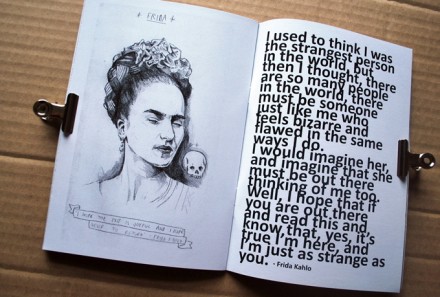 FRIDA
I HOPE THE EXIT IS JOYFUL AND I HOPE
NEVER TO RETURN - FRIDA KAHLO
I used to think I was
the strangest person
in the world but
then I thought, there
are so many people
in the world, there
must be someone
just like me who
feels bizarre and
flawed in the same
ways I do.
I would imagine her,
and imagine that she
must be out there
thinking of me too.
Well, I hope that if
you are out there
and read this and
know that, yes, it's
true I'm here, and
I'm just as strange as
you. - Frida Kahlo